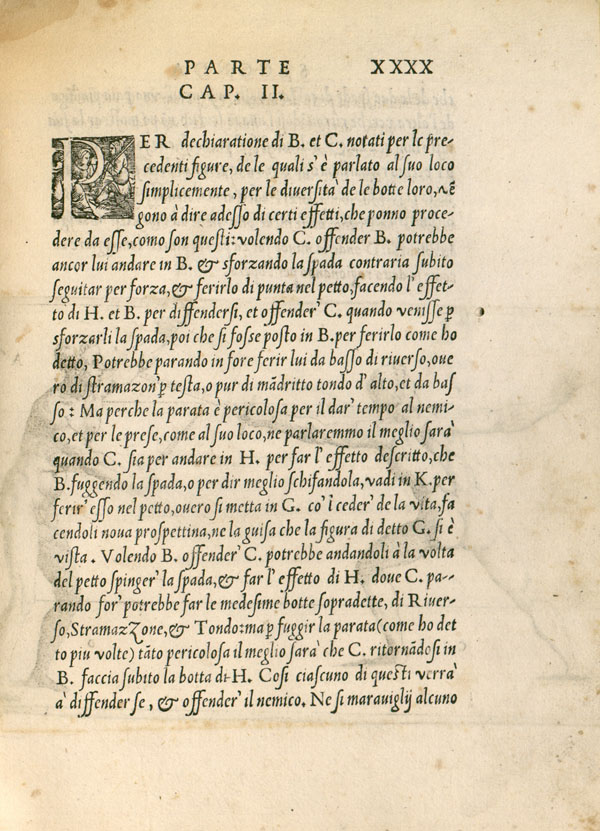 PARTE XXXX
CAP. II.
PER dechiaratione di B. et C. notati per le pre-
cedenti figure, de le quali s'è parlato al suo loco
simplicemente, per le diuersità de le botte loro, vē
gono à dire adesso di certi effetti, che ponno proce-
dere da esse, como son questi: volendo C. offender B. potrebbe
ancor lui andare in B. & sforzando la spada contraria subito
seguitar per forza, & ferirlo di punta nel petto, facendo l'effet-
to di H. et B. per diffendersi, et offender' C. quando venisse ꝑ
sforzarli la spada, poi che si fosse posto in B. per ferirlo come ho
detto, Potrebbe parando in fore ferir lui da basso di riuerso, oue
ro di stramazon' ꝑ testa, o pur di mādritto tondo d'alto, et da bas
so: Ma perche la parata è pericolosa per il dar' tempo al nemi-
co, et per le prese, come al suo loco, ne parlaremmo il meglio sarà
quando C. sia per andare in H. per far l'effetto descritto, che
B. fuggendo la spada, o per dir meglio schifandola, vadi in K. per
ferir' esso nel petto, ouero si metta in G. co'l ceder' de la vita, fa
cendoli noua prospettina, ne la guisa che la figura di detto G. si è
vista. Volendo B. offender' C. potrebbe andandoli à la volta
del petto spinger' la spada, & far l'effetto di H. doue C. pa-
rando for' potrebbe far le medesime botte sopradette, di Riuer-
so, Stramazzone, & Tondo: ma ꝑ fuggir la parata (come ho det
to piu volte) tāto pericolosa il meglio sarà che C. ritornādosi in
B. faccia subito la botta di H. Cosi ciascuno di questi verrà
à diffenderse, & offender' il nemico. Ne si marauiglij alcuno